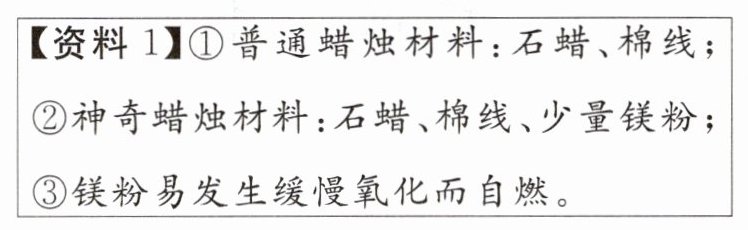 【资料 1】①普通蜡烛材料:石蜡、棉线;
②神奇蜡烛材料:石蜡、棉线、少量镁粉;
③镁粉易发生缓慢氧化而自燃。